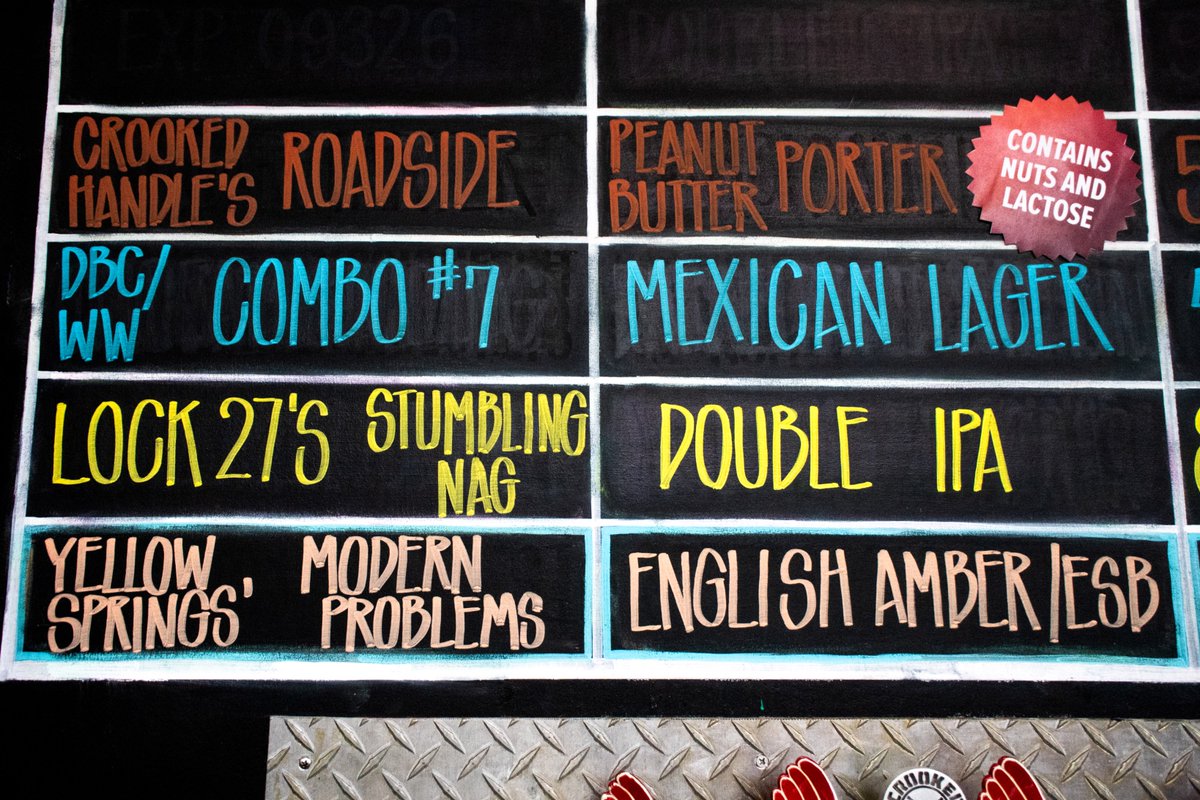 EXP 09326
DOUBLE IPA
CROOKED HANDLE'S ROADSIDE
PEANUT BUTTER PORTER
CONTAINS
NUTS AND
LACTOSE
DBC/WW COMBO #7
MEXICAN LAGER
LOCK 27'S STUMBLING NAG
DOUBLE IPA
YELLOW SPRINGS' MODERN PROBLEMS
ENGLISH AMBER/ESB
CROOKED